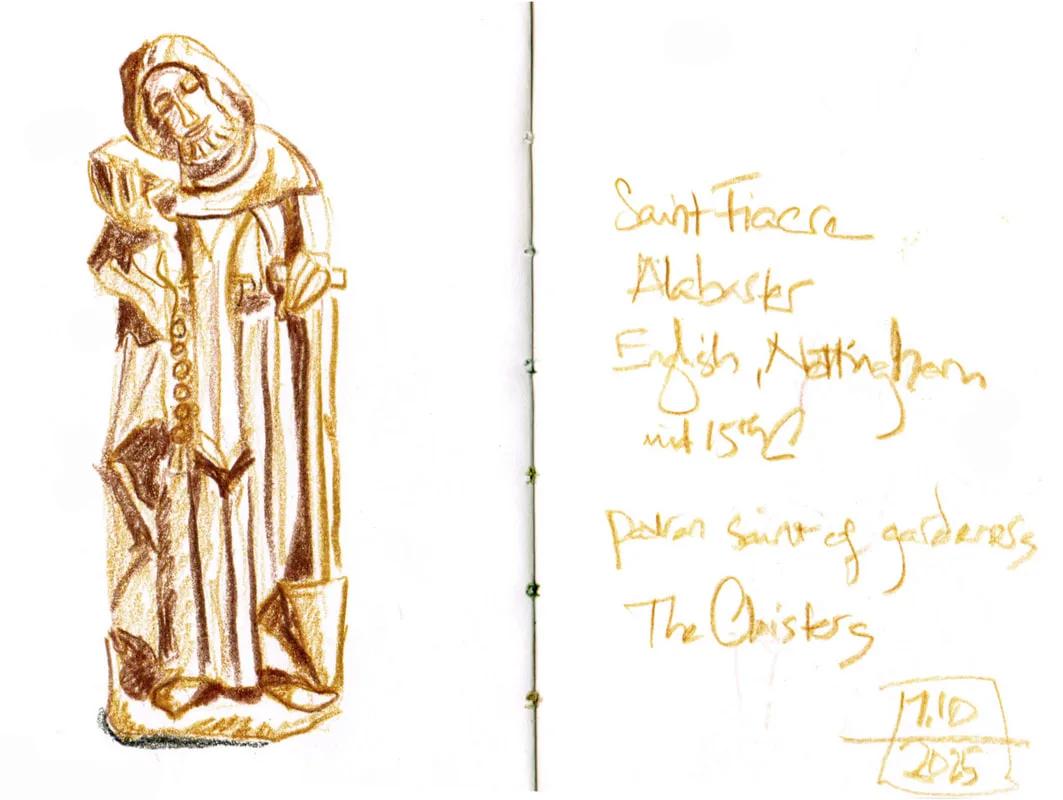 Saint Fiacre
Alabaster
English, Nottingham
mid 15th C
patron saint of gardeners
The Cloisters
7.10
2025